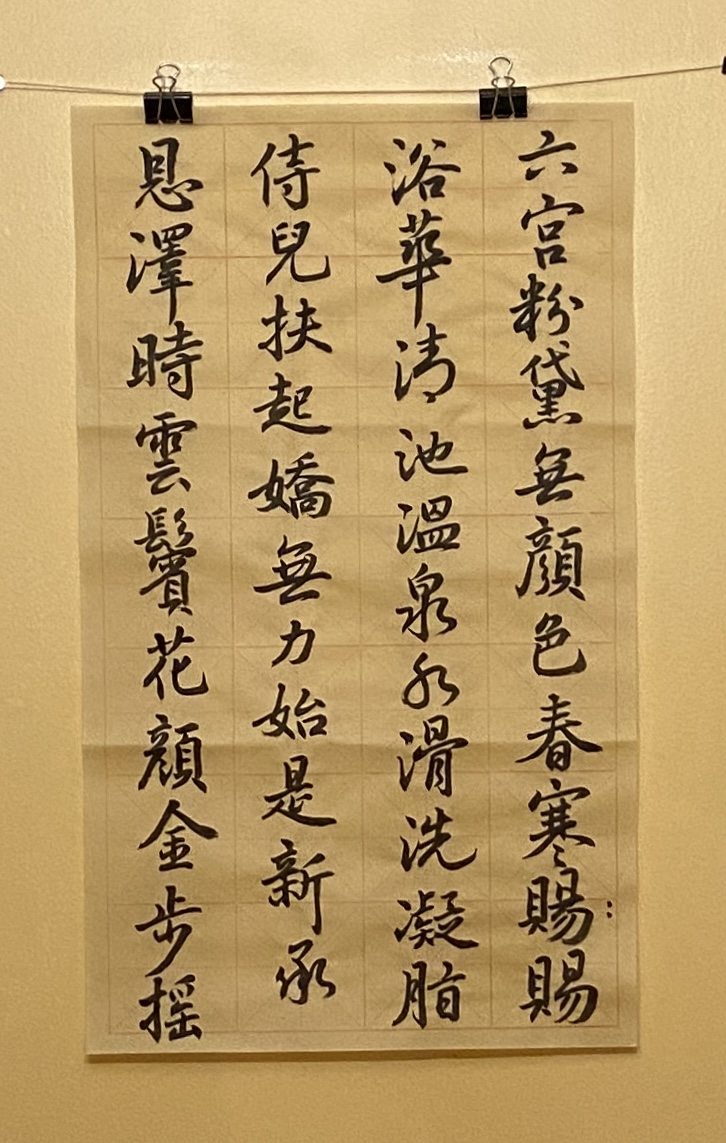 六宮粉黛無顔色春寒賜賜
浴華清池溫泉水滑洗凝脂
侍兒扶起嬌無力始是新承
恩澤時雲鬢花顔金步搖